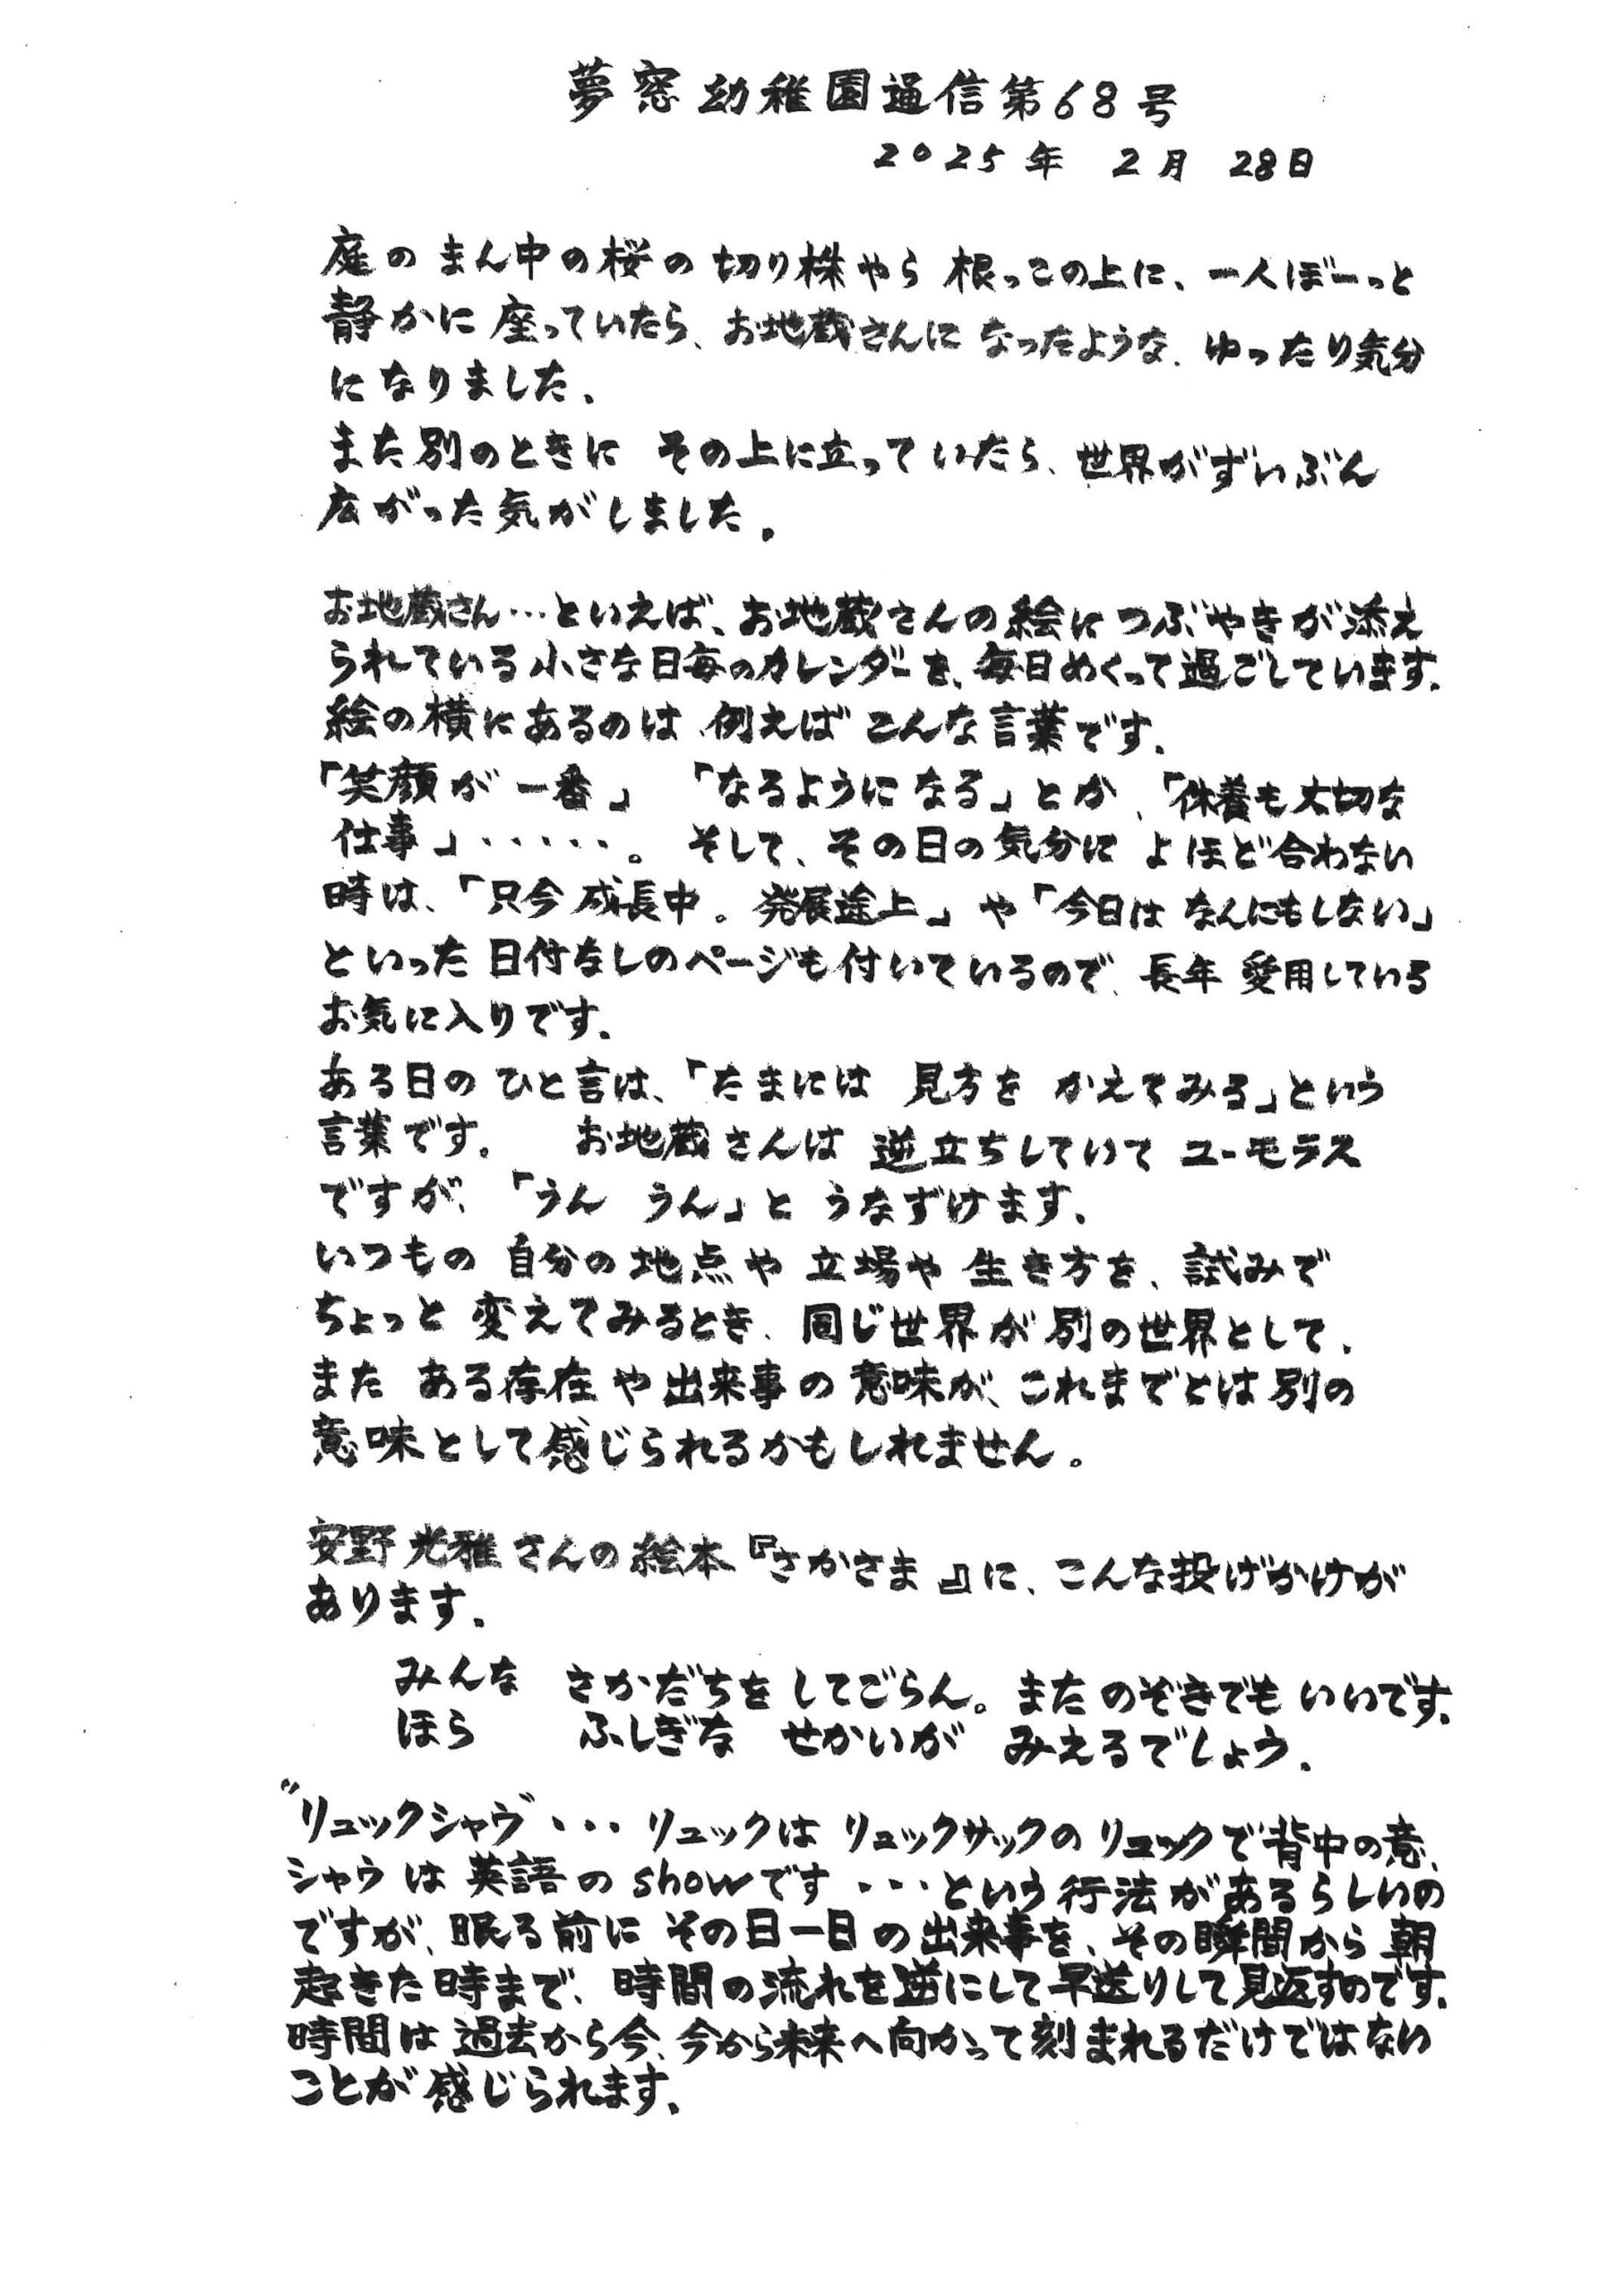 夢窓幼稚園通信第68号
2025年 2月 28日
庭のまん中の桜の切り株やら根っこの上に、一人ぼーっと
静かに座っていたら、お地蔵さんになったような、ゆったり気分
になりました。
また別のときに その上に立っていたら、世界がずいぶん
広がった気がしました。
お地蔵さん…といえば、お地蔵さんの絵につぶやきが添え
られている小さな日毎のカレンダーを、毎日めくって過ごしています。
絵の横にあるのは、例えばこんな言葉です。
「笑顔が一番」 「なるようになる」とか、「休養も大切な
仕事」・・・・・。 そして、その日の気分に よほど合わない
時は、「只今成長中。発展途上」や「今日は なんにもしない」
といった日付なしのページも付いているので、長年愛用している
お気に入りです。
ある日の ひと言は、「たまには 見方を かえてみる」という
言葉です。 お地蔵さんは 逆立ちしていて ユーモラス
ですが、「うん うん」と うなずけます。
いつもの 自分の地点や 立場や 生き方を、試みで
ちょっと 変えてみるとき、同じ世界が別の世界として、
また ある存在や出来事の意味が、これまでとは別の
意味として感じられるかもしれません。
安野光雅さんの絵本『さかさま』に、こんな投げかけが
あります。
みんな さかだちを してごらん。 またのぞきでも いいです。
ほら ふしぎな せかいが みえるでしょう。
“リュックシャウ”・・・リュックは リュックサックのリュックで背中の意、
シャウは英語のshowです・・・という行法があるらしいの
ですが、眠る前に その日一日の出来事を、その瞬間から朝
起きた時まで、時間の流れを逆にして早送りして見返すのです。
時間は過去から今、今から未来へ向かって刻まれるだけではない
ことが感じられます。